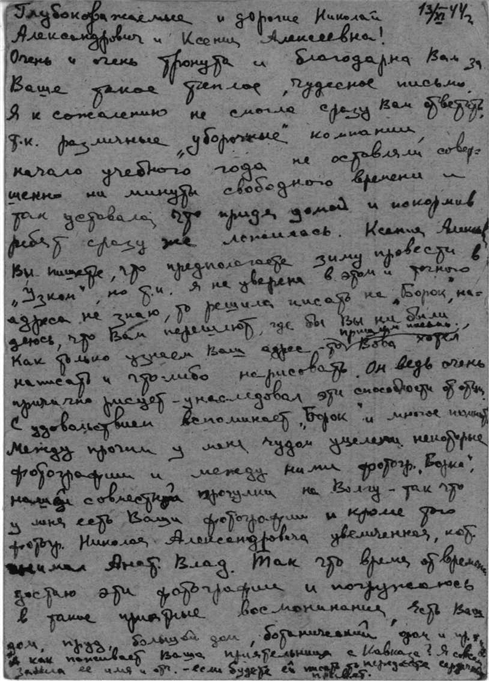 13/XI 44 г.
Глубокоуважаемые и дорогие Николай
Александрович и Ксения Алексеевна!
Очень и очень тронута и благодарна Вам за
Ваше такое теплое, чудесное письмо.
Я к сожалению не смогла сразу Вам ответить,
т.к. различные „уборочные" компании,
начало учебного года не оставляли совер-
шенно ни минуты свободного времени и
так уставала, что придя домой и накормив
ребят сразу же ложилась. Ксения
Вы пишете, что предполагаете зиму провести в
„Узком", но т.к. я не уверена в этом и точного
адреса не знаю, то решила писать на „Борок", на-
деюсь, что Вам перешлют, где бы Вы ни были
Как только узнаем Ваш адрес – то Вова хотел
написать и что-либо нарисовать. Он ведь очень
прилично рисует – унаследовал эти способности от отца.
С удовольствием вспоминает „Борок" и многое помнит
Между прочим у меня чудом уцелели некоторые
фотографии и между ними фотогр. „Борка",
нашей совместной прогулки на Волгу – так что
у меня есть Ваши фотографии и кроме того
фотогр. Николая Александровича увеличенная, кот.
снимал Анат. Влад. Так что время от времени
достаю эти фотографии и погружаюсь
в такие приятные воспоминания, есть Ваш
дом, пруд, большой дом, ботанический дом и пр.
А как поживает Ваша приятельница с Кавказа? Я
забыла ее имя и отч. – если будете ей писать то передайте сердечный
привет.